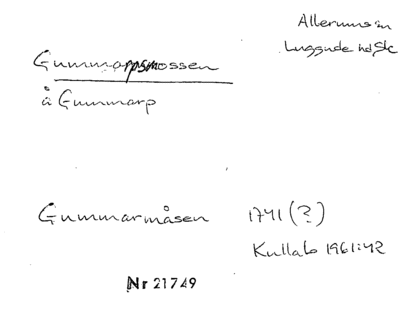 Allerums sn
Luggude hd Sk
Gummarpsmossen
å Gummarp
Gummarmåsen 1741 (?)
Kullab 1961:42
Nr 21749